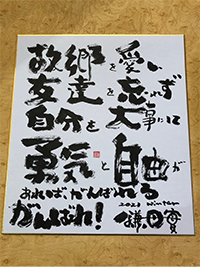 故郷を愛し
友達を忘れず
自分を大事に
勇気と自由が
あれば、がんばれる
がんばれ!
2023 winter
鎌田實